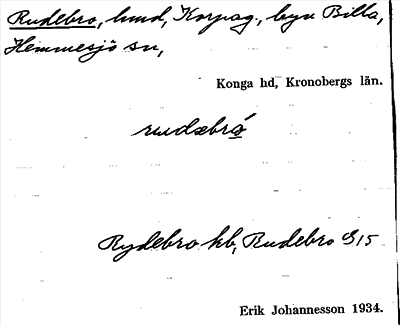 Rudebro, hmd, Korpag., byn Billa,
Hemmesjö sn,
Konga hd, Kronobergs län.
rudæbro
Rydebro kb, Rudebro G 15
Erik Johannesson 1934.